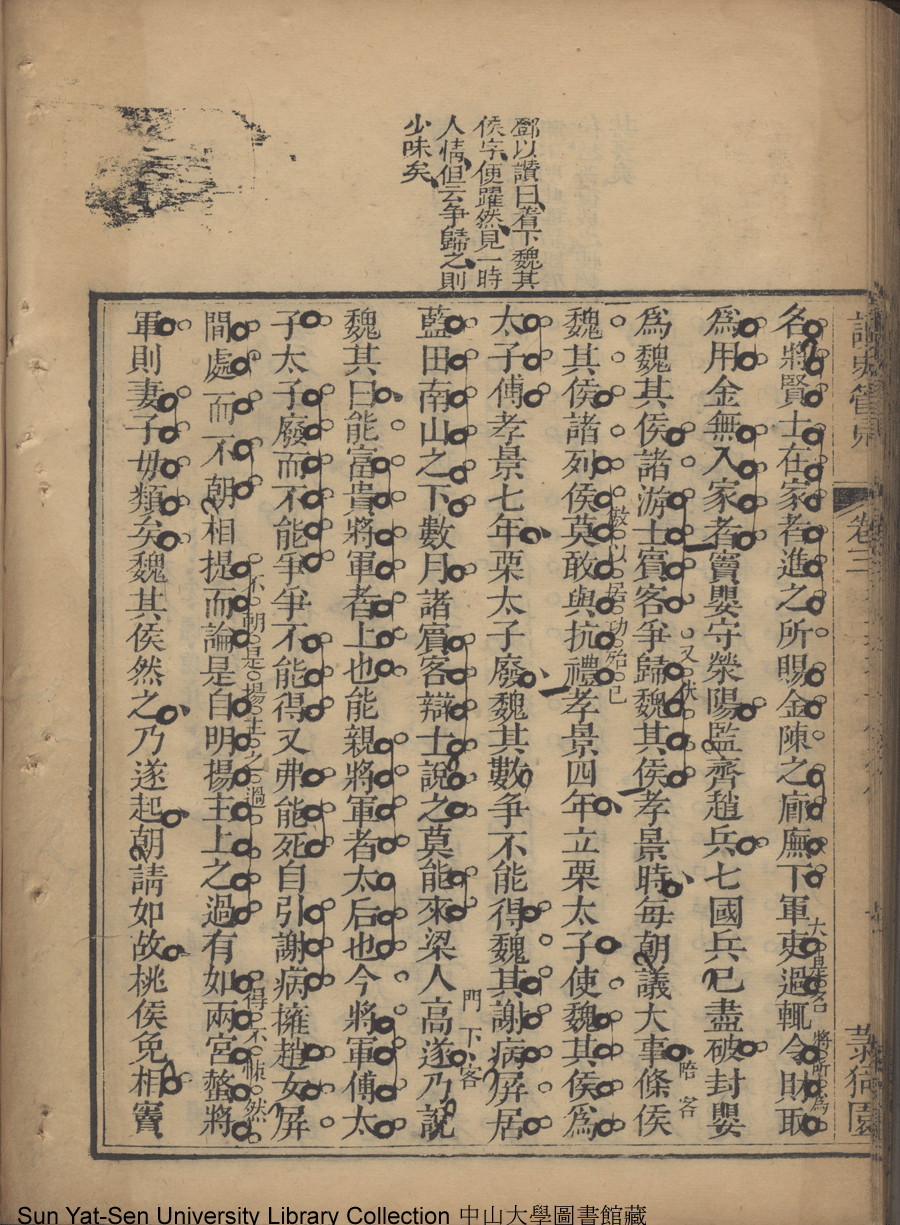 鄧以讚曰着下魏其
侯字便躍然見一時
人情但云爭歸之則
少味矣
卷三
名將賢士在家者進之所賜金陳之廊廡下軍吏過輒令財取
大是名將所為
為用金無入家者竇嬰守滎陽監齊趙兵七國兵已盡破封嬰
為魏其侯諸游士賓客爭歸魏其侯孝景時每朝議大事條侯
陪客
魏其侯諸列侯莫敢與抗禮孝景四年立栗太子使魏其侯為
太子傅孝景七年栗太子廢魏其數爭不能得魏其謝病屏居
藍田南山之下數月諸賓客辯士說之莫能來梁人高遂乃說
門下客
魏其曰能富貴將軍者上也能親將軍者太后也今將軍傅太
子太子廢而不能爭爭不能得又弗能死自引謝病擁趙女屏
間處而不朝相提而論是自明揚主上之過有如兩宮螫將
不朝是揚主之過
得不悚然
軍則妻子毋類矣魏其侯然之乃遂起朝請如故桃侯免相竇
Sun Yat-Sen University Library Collection 中山大學圖書館藏